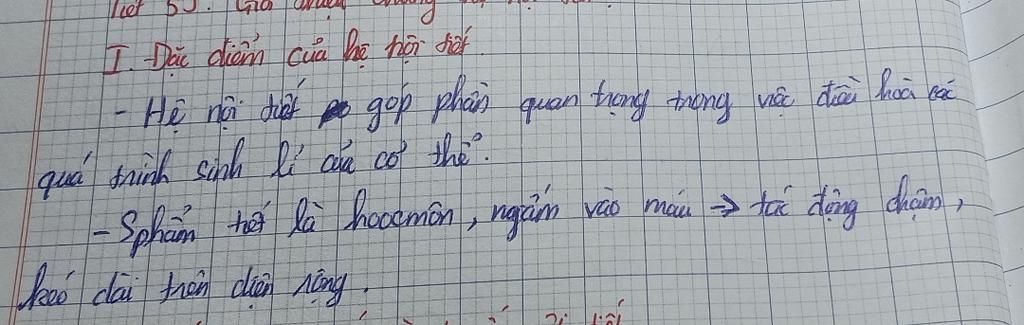 Tiết 55.
I. Đặc điểm của hệ nội tiết.
- Hệ nội tiết góp phần quan trọng trong việc điều hoà các
quá trình sinh lí của cơ thể.
- Sphẩm tiết là hoocmôn, ngấm vào máu → tác động chậm,
kéo dài trên diện rộng.